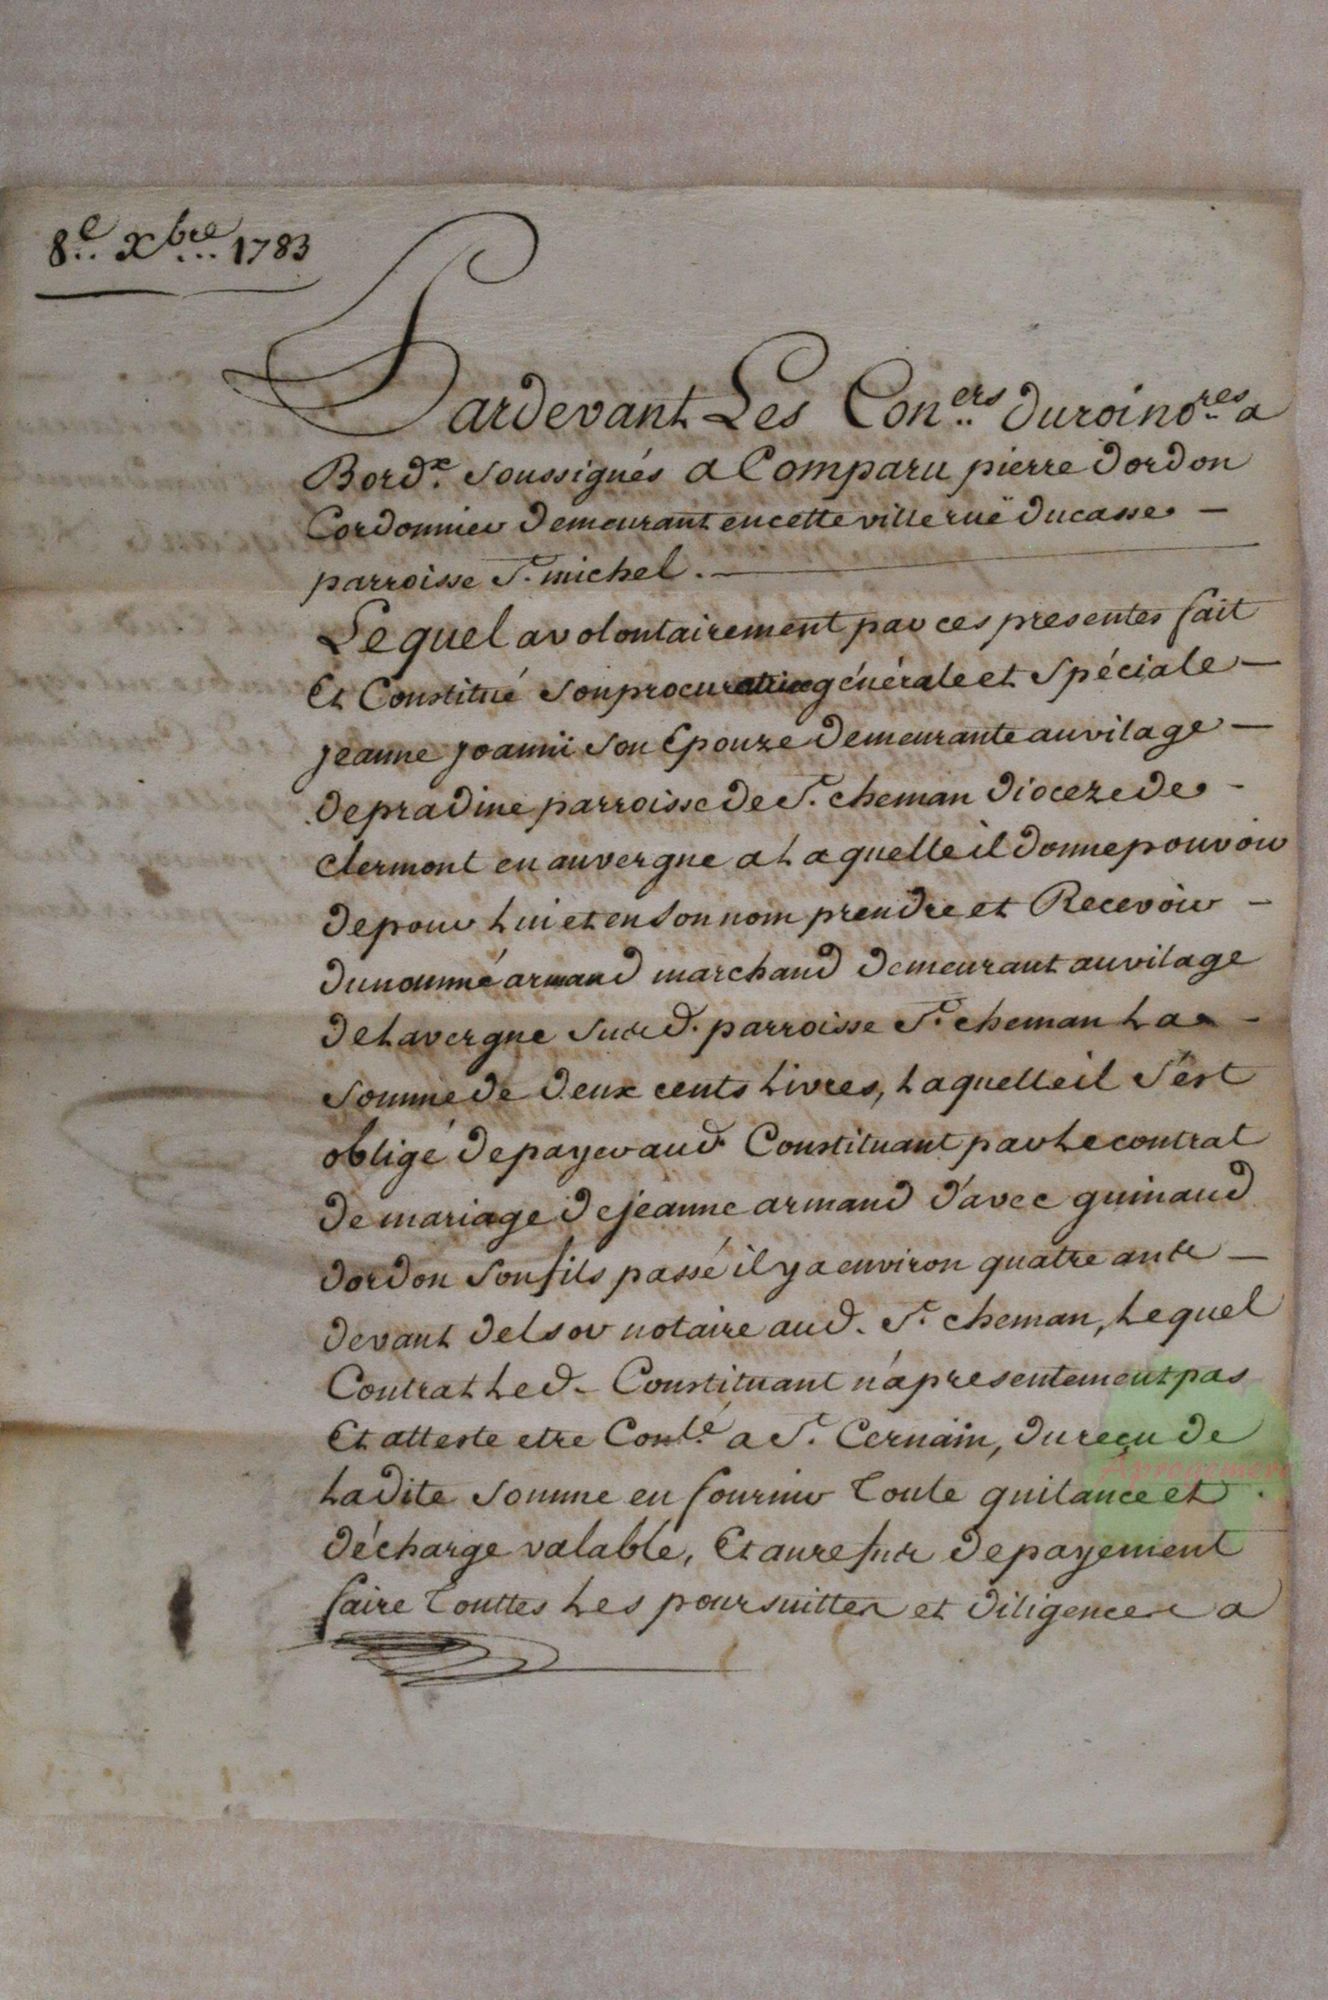 8.e Xbre 1783
Pardevant Les Con.ers du roi no.res a
Bord.x soussignés a Comparu pierre dordon
Cordonnier demeurant en cette ville ruë ducasse —
parroisse S.t michel. —
Lequel a volontairement par ces presentes fait
Et Constitué son procuratrice générale et spéciale —
jeanne joannii son Epouze demeurante au vilage —
de pradine parroisse de S.t cheman dioceze de -
clermont en auvergne a Laquelle il donne pouvoir
de pour Lui et en son nom prendre et Recevoir -
du nommé armand marchand demeurant au vilage
de Lavergne susd. parroisse S.t cheman La -
somme de deux cents Livres, Laquelle il s'est
obligé de payer aud. Constituant par Le contrat
de mariage de jeanne armand d'avec guinaud
dordon son fils passé il y a environ quatre ants —
devant delsor notaire aud. S.t cheman, Lequel
Contrat Led. Constituant n'a presentement pas
Et atteste etre Con.lé a S.t Cernain, du reçu de
Ladite somme en fournir toute quitance et
décharge valable, Et au refus de payement
faire touttes Les poursuittes et diligences a
Aproyemere